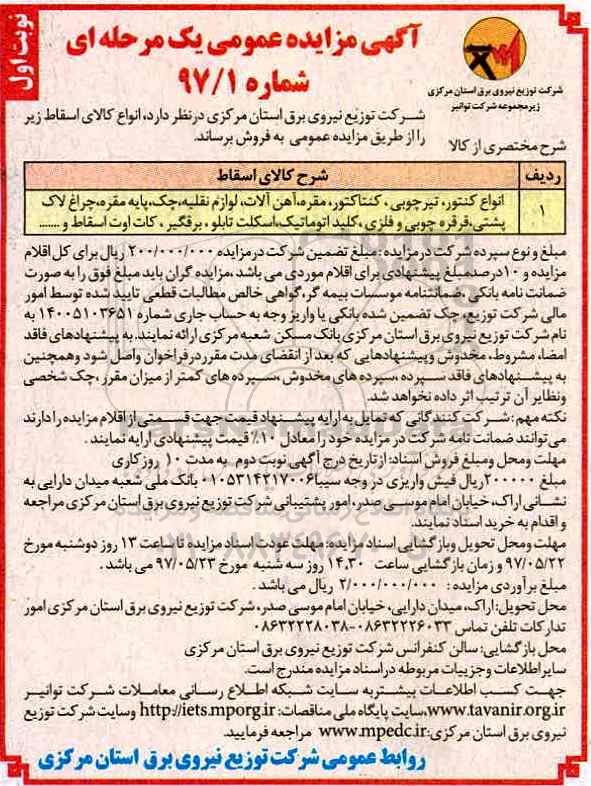 نوبت اول
آگهی مزایده عمومی یک مرحله ای
شماره ۹۷/۱
شرکت توزیع نیروی برق استان مرکزی
زیرمجموعه شرکت توانیر
شرکت توزیع نیروی برق استان مرکزی درنظر دارد، انواع کالای اسقاط زیر
را از طریق مزایده عمومی به فروش برساند.
شرح مختصری از کالا
ردیف شرح کالای اسقاط
۱ انواع کنتور، تیرچوبی، کنتاکتور، مقره،آهن آلات، لوازم نقلیه،جک،پایه مقره،چراغ لاک
پشتی،قرقره چوبی و فلزی،کلید اتوماتیک،اسکلت تابلو، برقگیر، کات اوت اسقاط و .......
مبلغ و نوع سپرده شرکت در مزایده: مبلغ تضمین شرکت در مزایده ۲۰۰/۰۰۰/۰۰۰ ریال برای کل اقلام
مزایده و ۱۰درصدمبلغ پیشنهادی برای اقلام موردی می باشد،مزایده گران باید مبلغ فوق را به صورت
ضمانت نامه بانکی،ضمانتنامه موسسات بیمه گر،گواهی خالص مطالبات قطعی تایید شده توسط امور
مالی شرکت توزیع، چک تضمین شده بانکی یا واریز وجه به حساب جاری شماره ۱۴۰۰۵۱۰۳۶۵۱ به
نام شرکت توزیع نیروی برق استان مرکزی بانک مسکن شعبه مرکزی ارائه نمایند. به پیشنهادهای فاقد
امضا، مشروط، مخدوش وپیشنهادهایی که بعد از انقضای مدت مقرر درفراخوان واصل شود وهمچنین
به پیشنهادهای فاقد سپرده ،سپرده های مخدوش ،سپرده های کمتر از میزان مقرر ،چک شخصی
ونظایر آن ترتیب اثر داده نخواهد شد.
نکته مهم : شرکت کنندگانی که تمایل به ارایه پیشنهاد قیمت جهت قسمتی از اقلام مزایده را دارند
می توانند ضمانت نامه شرکت در مزایده خود را معادل ۱۰٪ قیمت پیشنهادی ارایه نمایند .
مهلت ومحل ومبلغ فروش اسناد: از تاریخ درج آگهی نوبت دوم به مدت ۱۰ روز کاری
مبلغ ۲۰۰۰۰۰ ریال فیش واریزی در وجه سیبا ۰۱۰۵۳۱۴۲۱۷۰۰۶ بانک ملی شعبه میدان دارایی به
نشانی اراک، خیابان امام موسی صدر، امور پشتیبانی شرکت توزیع نیروی برق استان مرکزی مراجعه
و اقدام به خرید اسناد نمایند.
مهلت ومحل تحویل وبازگشایی اسناد مزایده: مهلت عودت اسناد مزایده تا ساعت ۱۳ روز دوشنبه مورخ
۹۷/۰۵/۲۲ و زمان بازگشایی ساعت ۱۴،۳۰ روز سه شنبه مورخ ۹۷/۰۵/۲۳ می باشد .
مبلغ برآوردی مزایده : ۲/۰۰۰/۰۰۰/۰۰۰ ریال می باشد .
محل تحویل: اراک، میدان دارایی، خیابان امام موسی صدر، شرکت توزیع نیروی برق استان مرکزی امور
تدارکات تلفن تماس ۰۸۶۳۲۲۲۶۰۳۳-۰۸۶۳۲۲۲۸۰۳۸
محل بازگشایی: سالن کنفرانس شرکت توزیع نیروی برق استان مرکزی
سایر اطلاعات وجزییات مربوطه در اسناد مزایده مندرج است.
جهت کسب اطلاعات بیشتر به سایت شبکه اطلاع رسانی معاملات شرکت توانیر
www.tavanir.org.ir،سایت پایگاه ملی مناقصات: http://iets.mporg.ir وسایت شرکت توزیع
نیروی برق استان مرکزی:www.mpedc.ir مراجعه فرمایید.
روابط عمومی شرکت توزیع نیروی برق استان مرکزی